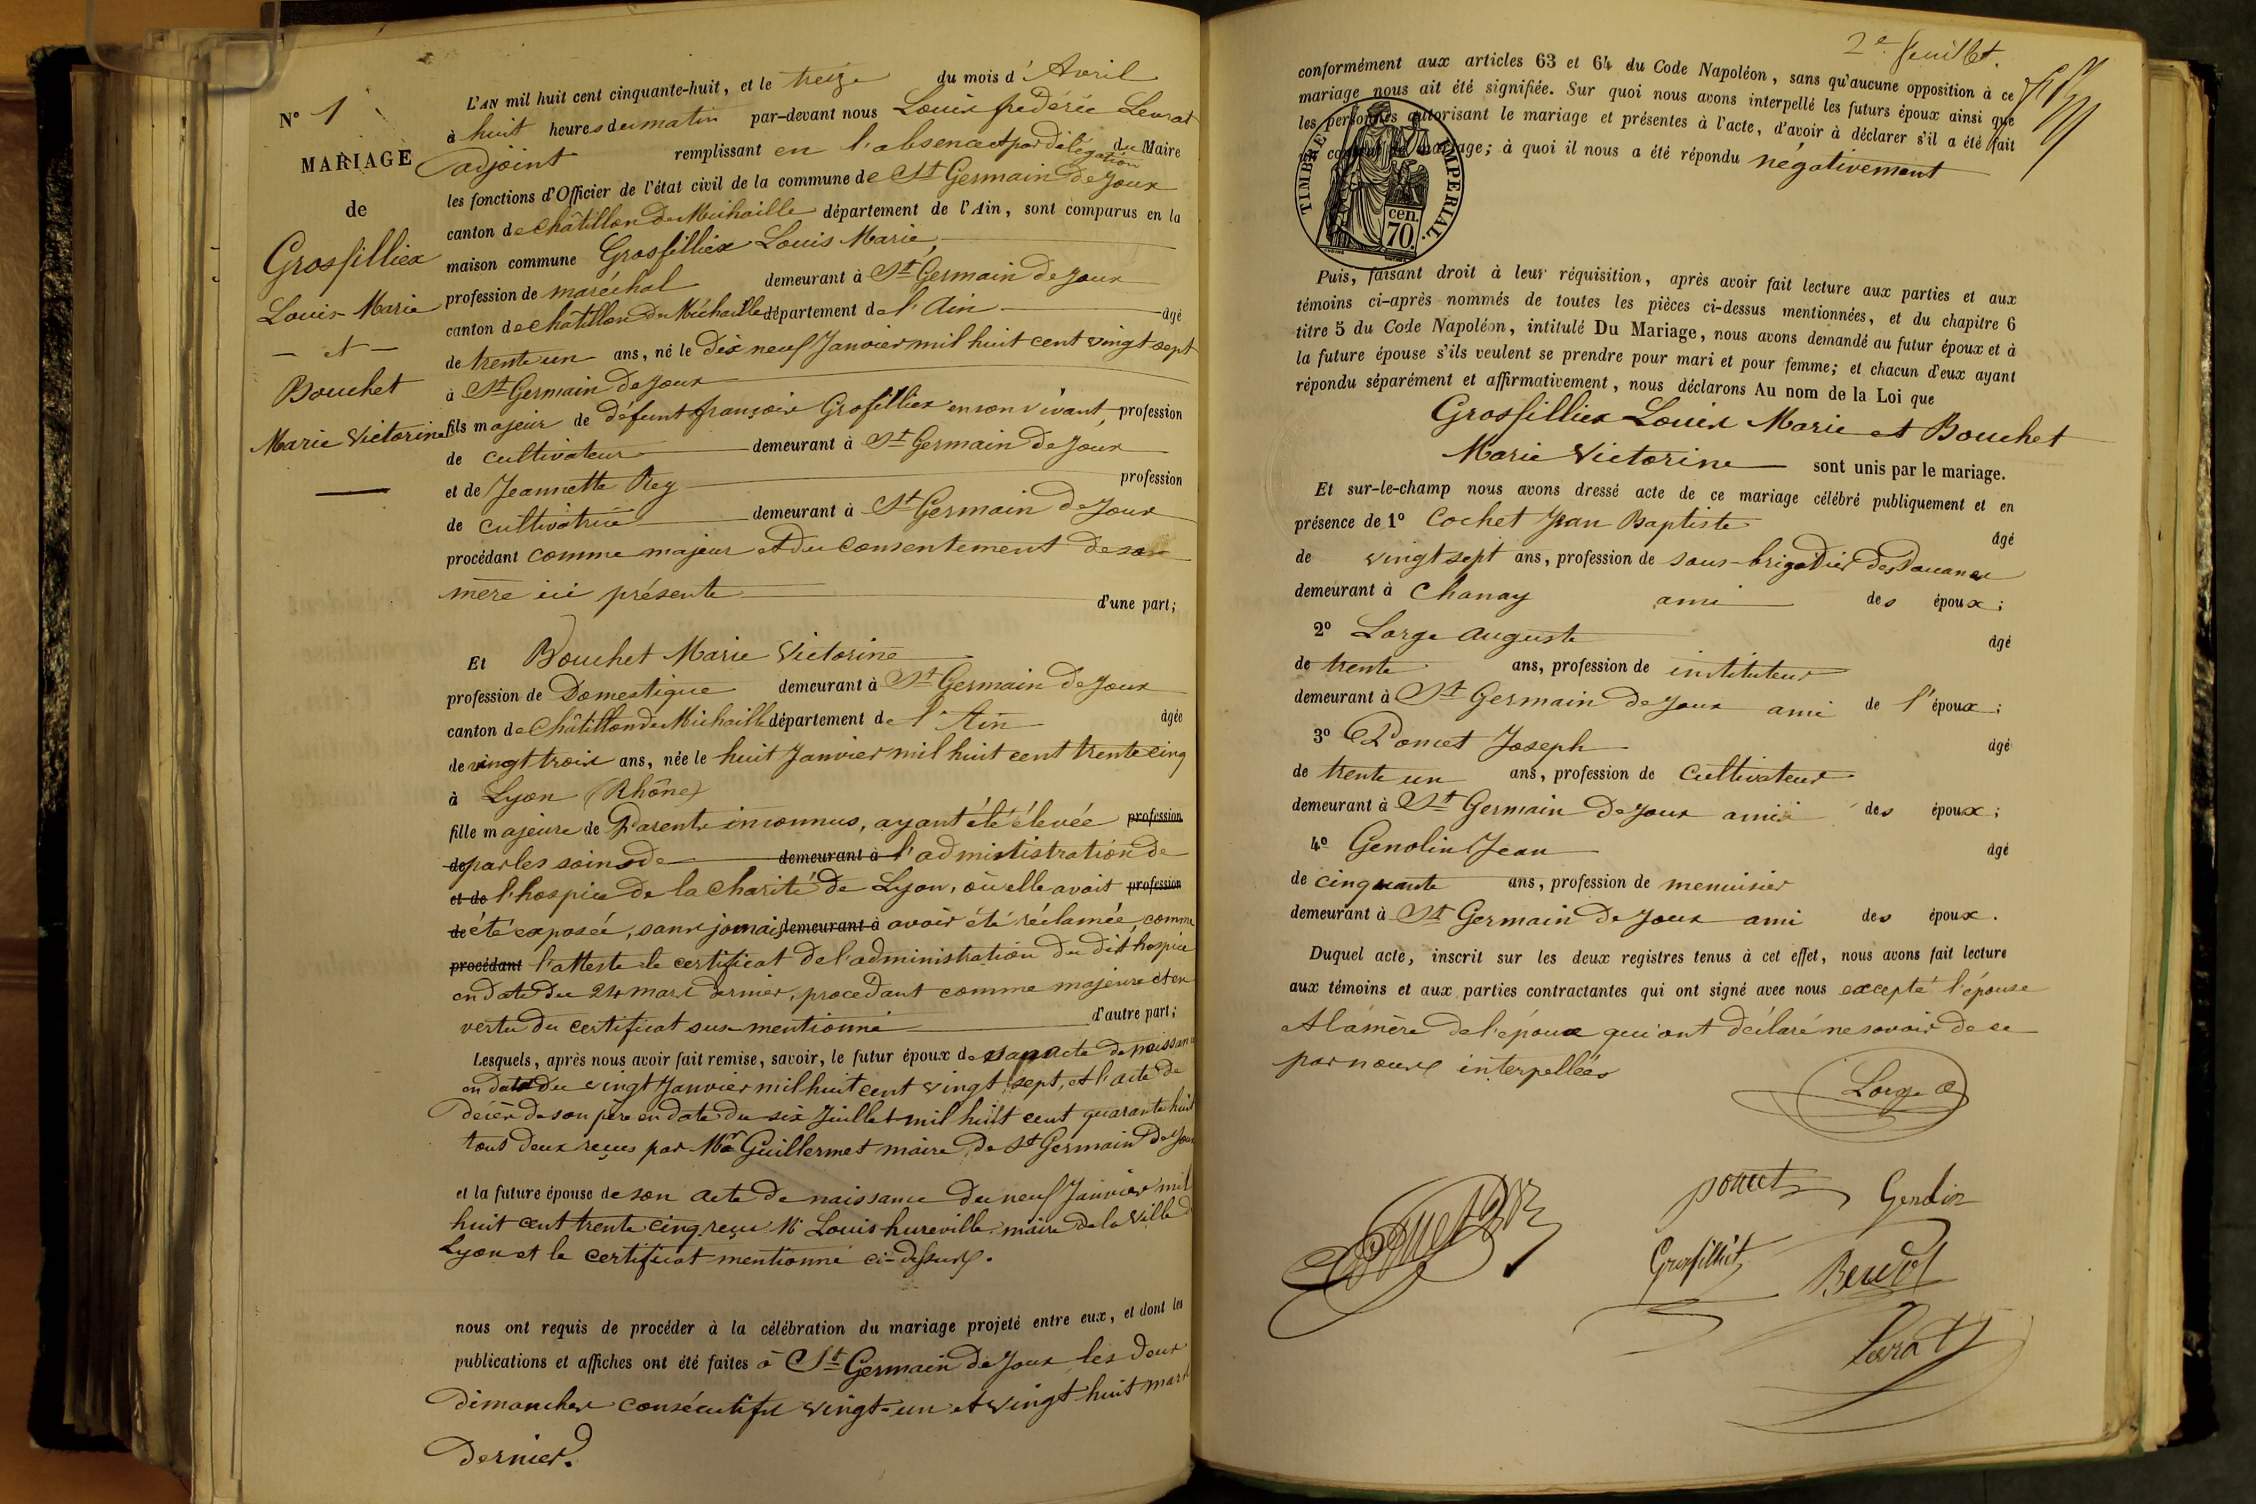 N° 1
MARIAGE
de
Grosfilliex
Louis-Marie
- et -
Bouchet
Marie Victorine
L'AN mil huit cent cinquante-huit, et le treize du mois d'Avril
à huit heures du matin par-devant nous Louis frédéric Levrat
adjoint remplissant en l'absence et par délégation du Maire
les fonctions d'Officier de l'état civil de la commune de St Germain de Joux
canton de Châtillon de Michaille département de l'Ain, sont comparus en la
maison commune Grosfilliex Louis Marie,
profession de maréchal demeurant à St Germain de Joux
canton de Châtillon de Michaille département de l'Ain âgé
de trente un ans, né le dix neuf Janvier mil huit cent vingt sept
à St Germain de Joux
fils majeur de défunt françois Grosfilliex en son vivant profession
de cultivateur demeurant à St Germain de Joux
et de Jeannette Rey profession
de cultivatrice demeurant à St Germain de Joux
procédant comme majeur et du consentement de sa
mère ici présente d'une part;
Et Bouchet Marie Victorine
profession de Domestique demeurant à St Germain de Joux
canton de Châtillon de Michaille département de l'Ain âgée
de vingt trois ans, née le huit Janvier mil huit cent trente cinq
à Lyon (Rhône)
fille majeure de Parents inconnus, ayant été élevée profession
de par les soins de demeurant à l'administration de
et de l'hospice de la Charité de Lyon, où elle avait profession
de été exposée, sans jamais demeurant à avoir été réclamée, comme
procédant l'atteste le certificat de l'administration du dit hospice
en date du 24 mars dernier, procedant comme majeure et en
vertu du certificat sus mentionné d'autre part;
Lesquels, après nous avoir fait remise, savoir, le futur époux de son acte de naissance
en date du vingt Janvier mil huit cent vingt sept, et l'acte de
décès de son père en date du six Juillet mil huit cent quarante huit
tous deux reçus par Mr Guillermet maire de St Germain de Joux
et la future épouse de son acte de naissance du neuf Janvier mil
huit cent trente cinq reçu M Louis hureville maire de la Ville de
Lyon et le certificat mentionné ci-dessus.
nous ont requis de procéder à la célébration du mariage projeté entre eux, et dont les
publications et affiches ont été faites à St Germain de Joux les deux
dimanches consécutifs vingt-un et vingt-huit mars
dernier.
2e feuillet.
conformément aux articles 63 et 64 du Code Napoléon, sans qu'aucune opposition à ce
mariage nous ait été signifiée. Sur quoi nous avons interpellé les futurs époux ainsi que
les personnes autorisant le mariage et présentes à l'acte, d'avoir à déclarer s'il a été fait
un contrat de mariage; à quoi il nous a été répondu négativement
TIMBRE IMPERIAL.
cen.
70.
Puis, faisant droit à leur réquisition, après avoir fait lecture aux parties et aux
témoins ci-après nommés de toutes les pièces ci-dessus mentionnées, et du chapitre 6
titre 5 du Code Napoléon, intitulé Du Mariage, nous avons demandé au futur époux et à
la future épouse s'ils veulent se prendre pour mari et pour femme; et chacun d'eux ayant
répondu séparément et affirmativement, nous déclarons Au nom de la Loi que
Grosfilliex Louis Marie et Bouchet
Marie Victorine sont unis par le mariage.
Et sur-le-champ nous avons dressé acte de ce mariage célébré publiquement et en
présence de 1° Cochet Jean Baptiste âgé
de vingt sept ans, profession de sous-brigadier des Douanes
demeurant à Chanay ami des époux;
2° Lorge Auguste âgé
de trente ans, profession de instituteur
demeurant à St Germain de Joux ami de l'époux;
3° Poncet Joseph âgé
de trente un ans, profession de Cultivateur
demeurant à St Germain de Joux ami des époux;
4° Genolin Jean âgé
de cinquante ans, profession de menuisier
demeurant à St Germain de Joux ami des époux.
Duquel acte, inscrit sur les deux registres tenus à cet effet, nous avons fait lecture
aux témoins et aux parties contractantes qui ont signé avec nous excepté l'épouse
et la mère de l'époux qui ont déclaré ne savoir de ce
par nous interpellées
Lorge A
poncet
Genolin
Grosfilliex
Levrat